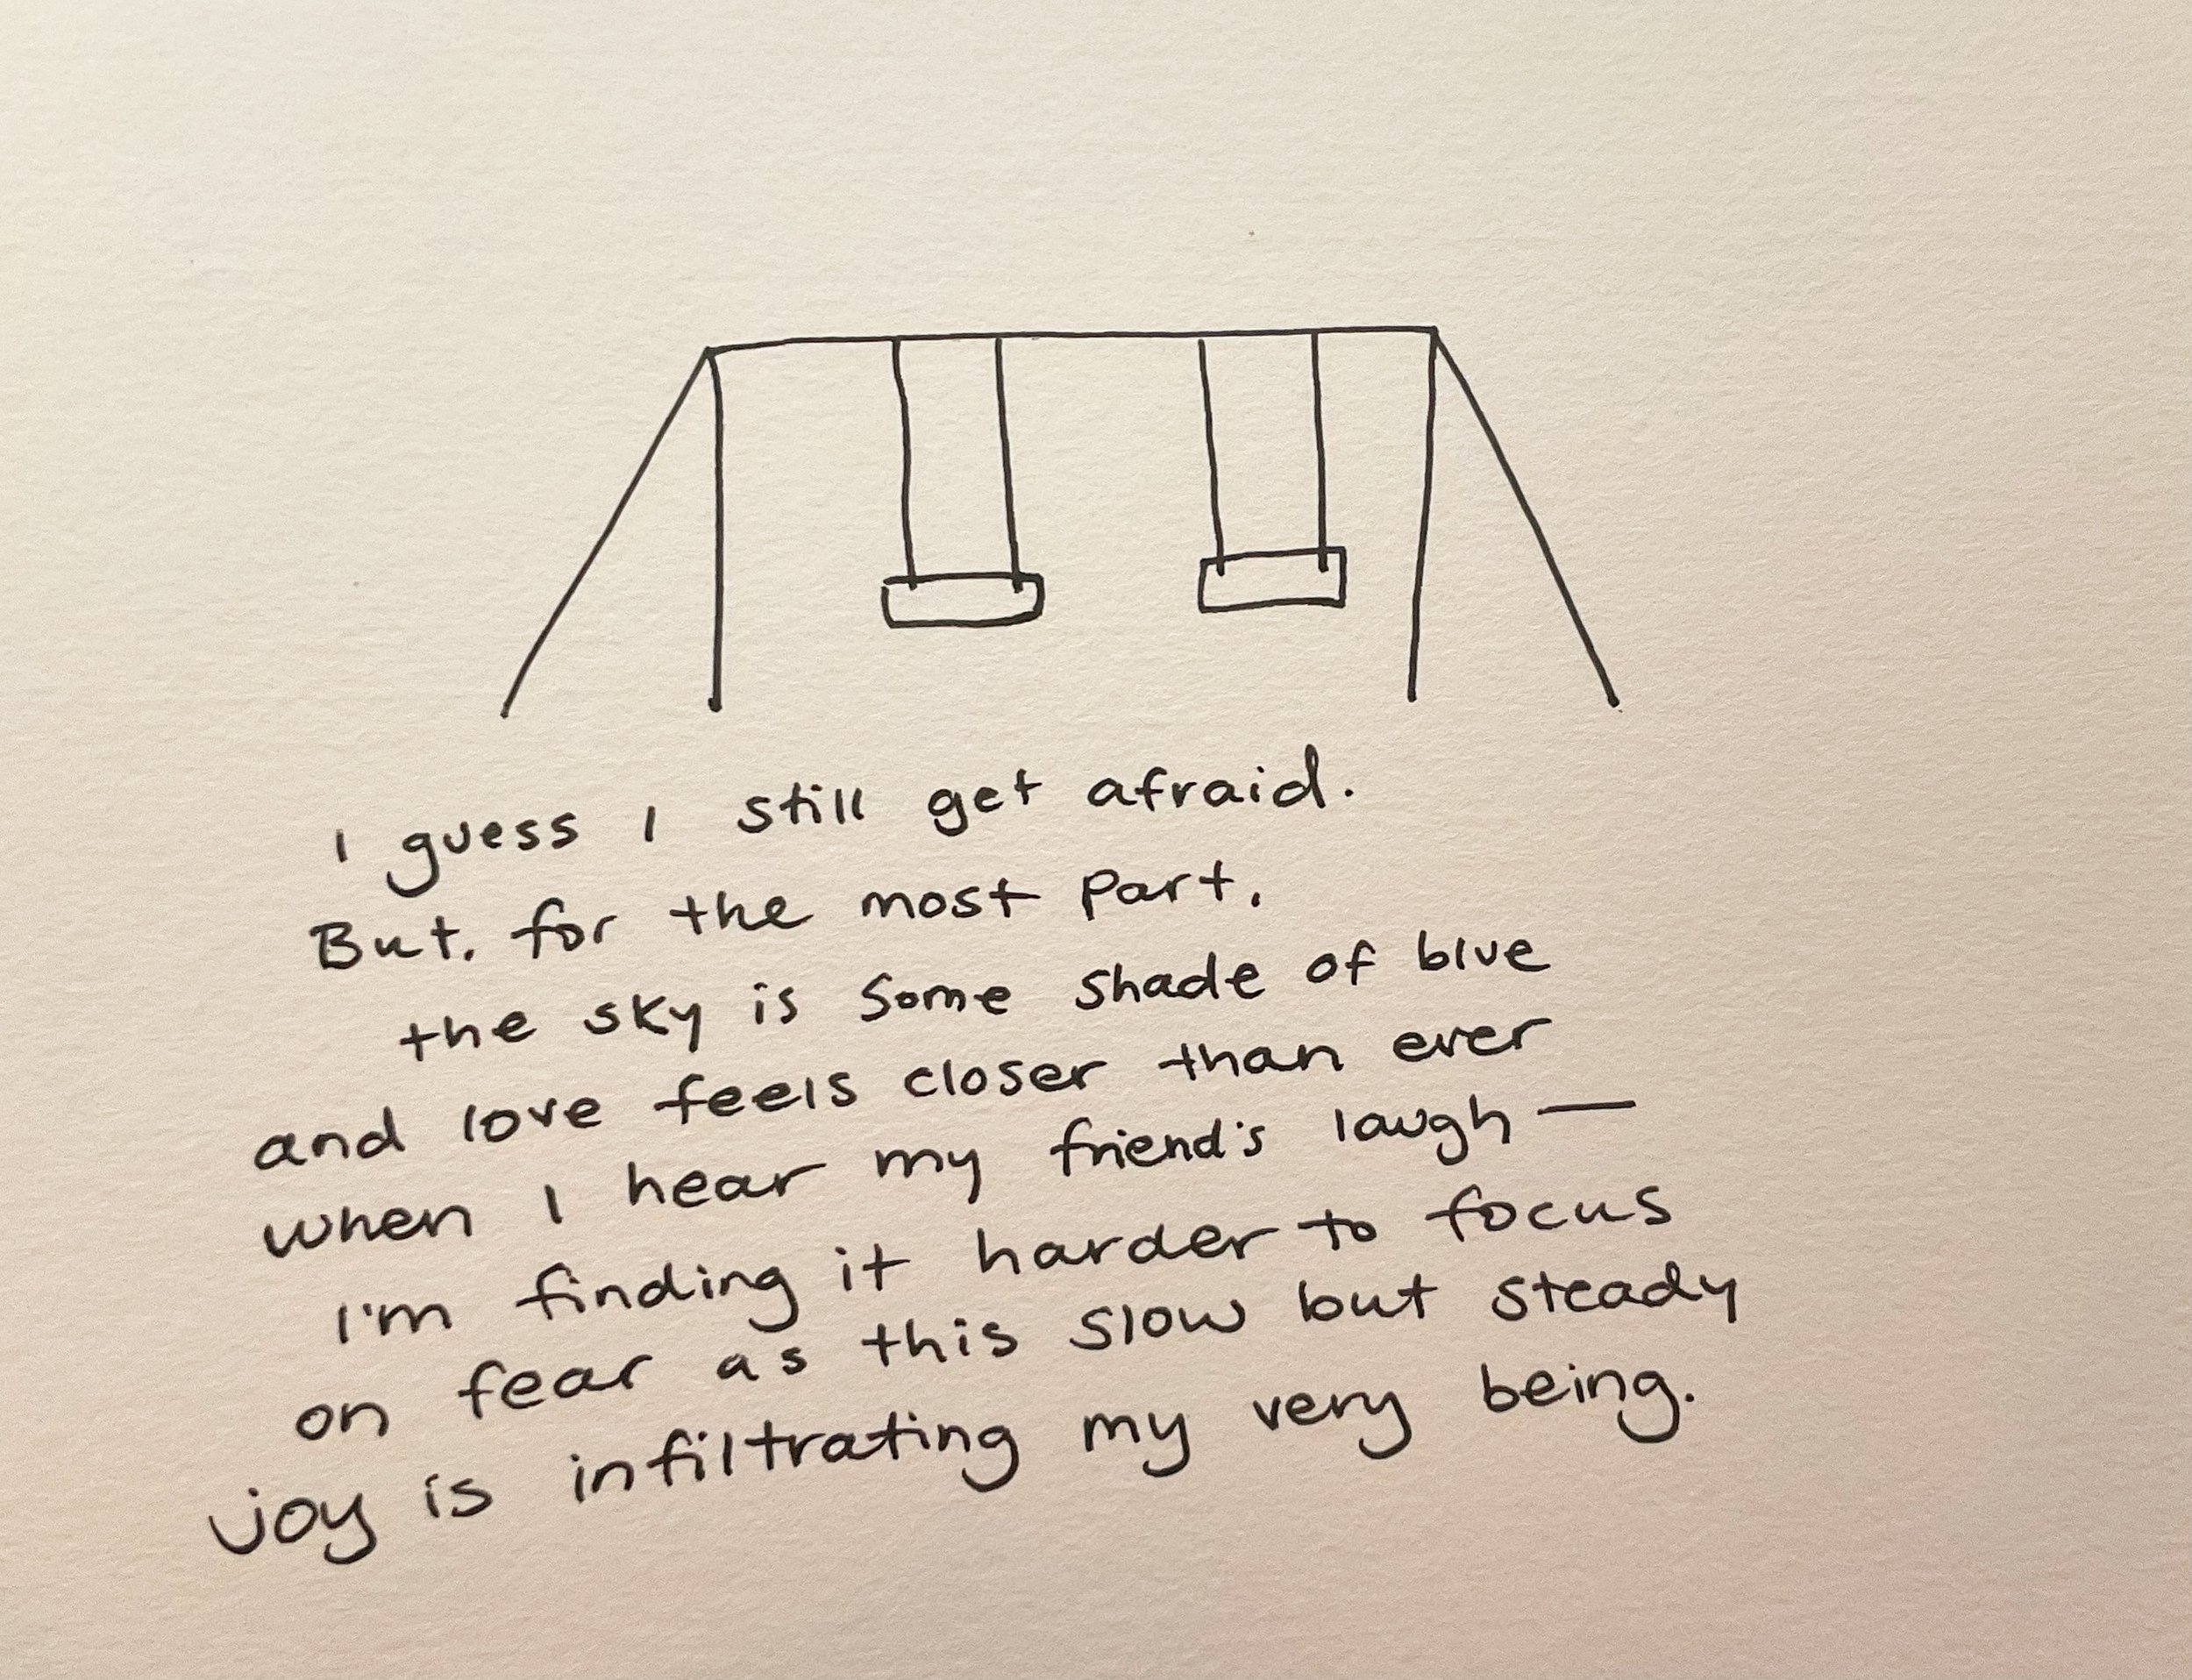 I guess I still get afraid.
But, for the most part,
the sky is some shade of blue
and love feels closer than ever
when I hear my friend's laugh —
I'm finding it harder to focus
on fear as this slow but steady
joy is infiltrating my very being.